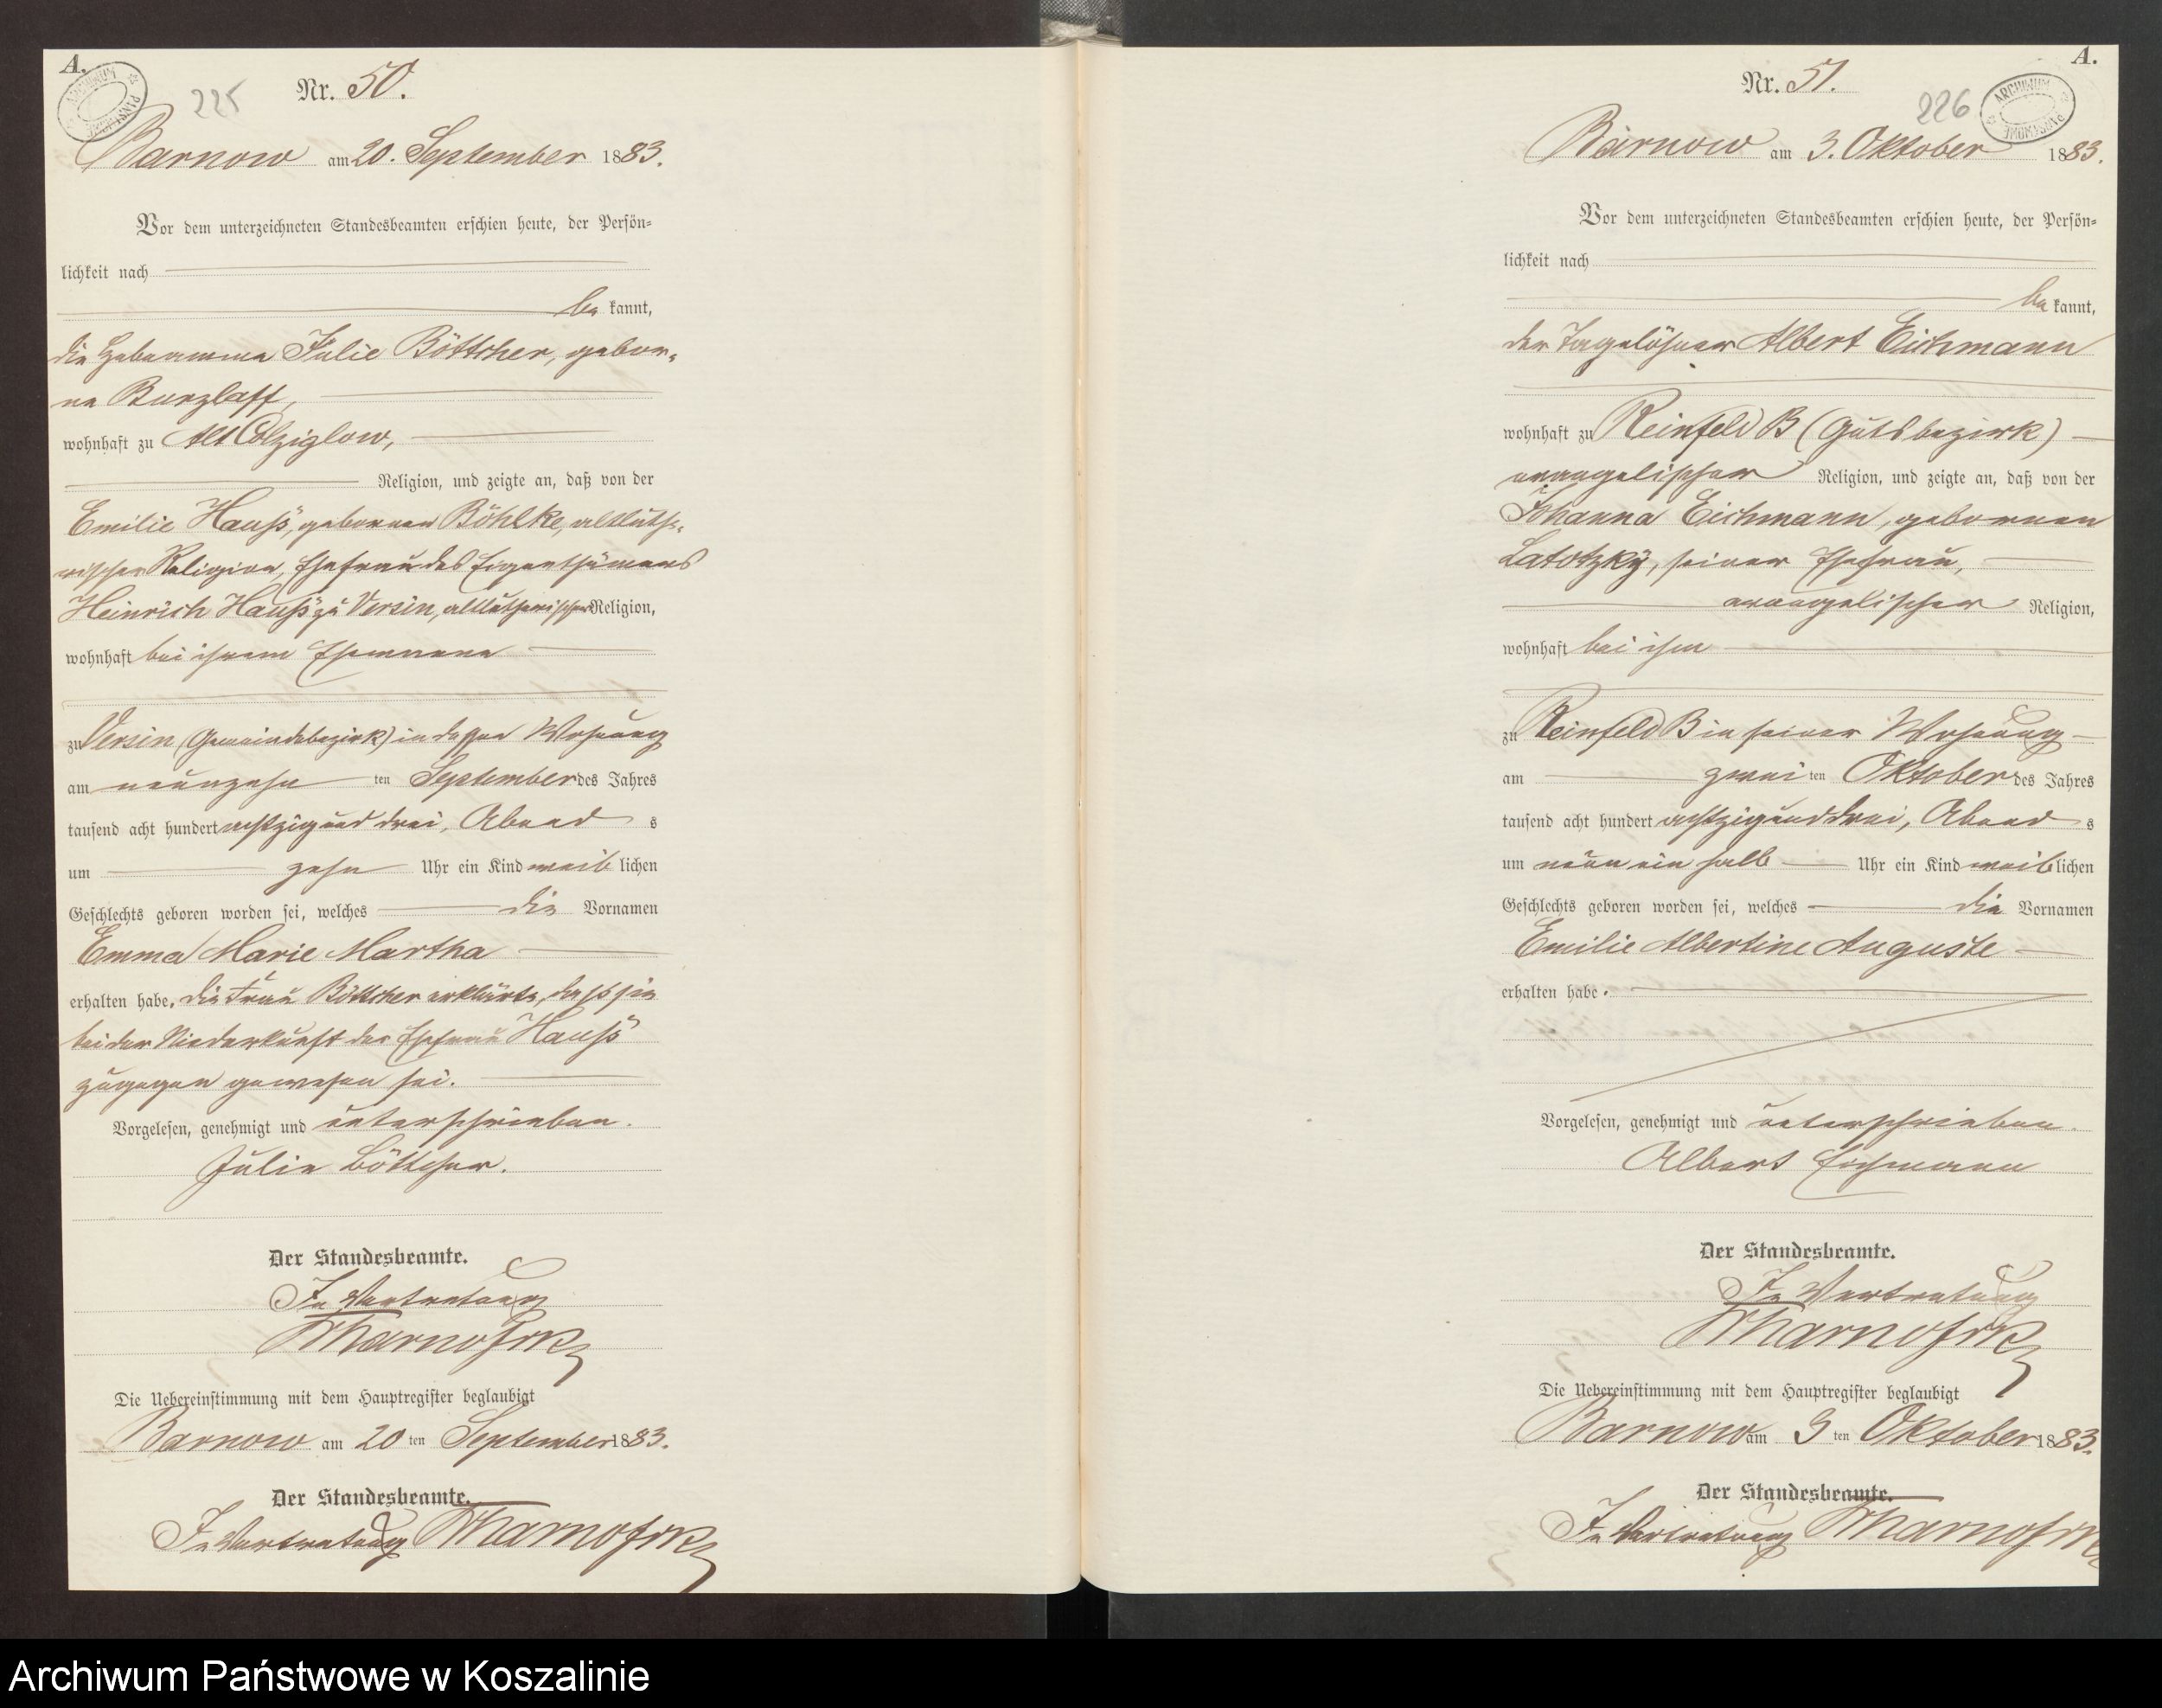 A.
ARCHIWUM PAŃSTWOWE
225
Nr. 50.
Barnow am 20. September 1883.
Vor dem unterzeichneten Standesbeamten erschien heute, der Persön-
lichkeit nach
be kannt,
die Hebeamme Julie Böttcher, gebor-
ne Burzlaff,
wohnhaft zu Alt Colziglow,
Religion, und zeigte an, daß von der
Emilie Hauß, geborenen Böhlke, altluthe-
rischer Religion, Ehefrau des Eigenthümers
Heinrich Hauß zu Versin, altlutherischer Religion,
wohnhaft bei ihrem Ehemanne
zu Versin (Gemeindebezirk) in dessen Wohnung
am neunzehn ten September des Jahres
tausend acht hundert achtzig und drei, Abend s
um zehn Uhr ein Kind weib lichen
Geschlechts geboren worden sei, welches die Vornamen
Emma Marie Martha
erhalten habe, die Frau Böttcher erklärte, daß sie
bei der Niederkunft der Ehefrau Hauß
zugegen gewesen sei.
Vorgelesen, genehmigt und unterschrieben.
Julie Böttcher.
Der Standesbeamte.
In Vertretung
Die Uebereinstimmung mit dem Hauptregister beglaubigt
Barnow am 20 ten September 1883.
Der Standesbeamte.
In Vertretung
A.
ARCHIWUM PAŃSTWOWE
226
Nr. 51.
Barnow am 3. Oktober 1883.
Vor dem unterzeichneten Standesbeamten erschien heute, der Persön-
lichkeit nach
be kannt,
der Tagelöhner Albert Eichmann
wohnhaft zu Reinfeld B (Gutsbezirk)
evangelischer Religion, und zeigte an, daß von der
Johanna Eichmann, geborenen
Latotzky, seiner Ehefrau,
evangelischer Religion,
wohnhaft bei ihm
zu Reinfeld B in seiner Wohnung
am zwei ten Oktober des Jahres
tausend acht hundert achtzig und drei, Abend s
um neun ein halb Uhr ein Kind weib lichen
Geschlechts geboren worden sei, welches die Vornamen
Emilie Albertine Auguste
erhalten habe.
Vorgelesen, genehmigt und unterschrieben.
Albert Eichmann
Der Standesbeamte.
In Vertretung
Die Uebereinstimmung mit dem Hauptregister beglaubigt
Barnow am 3 ten Oktober 1883.
Der Standesbeamte.
In Vertretung
Archiwum Państwowe w Koszalinie